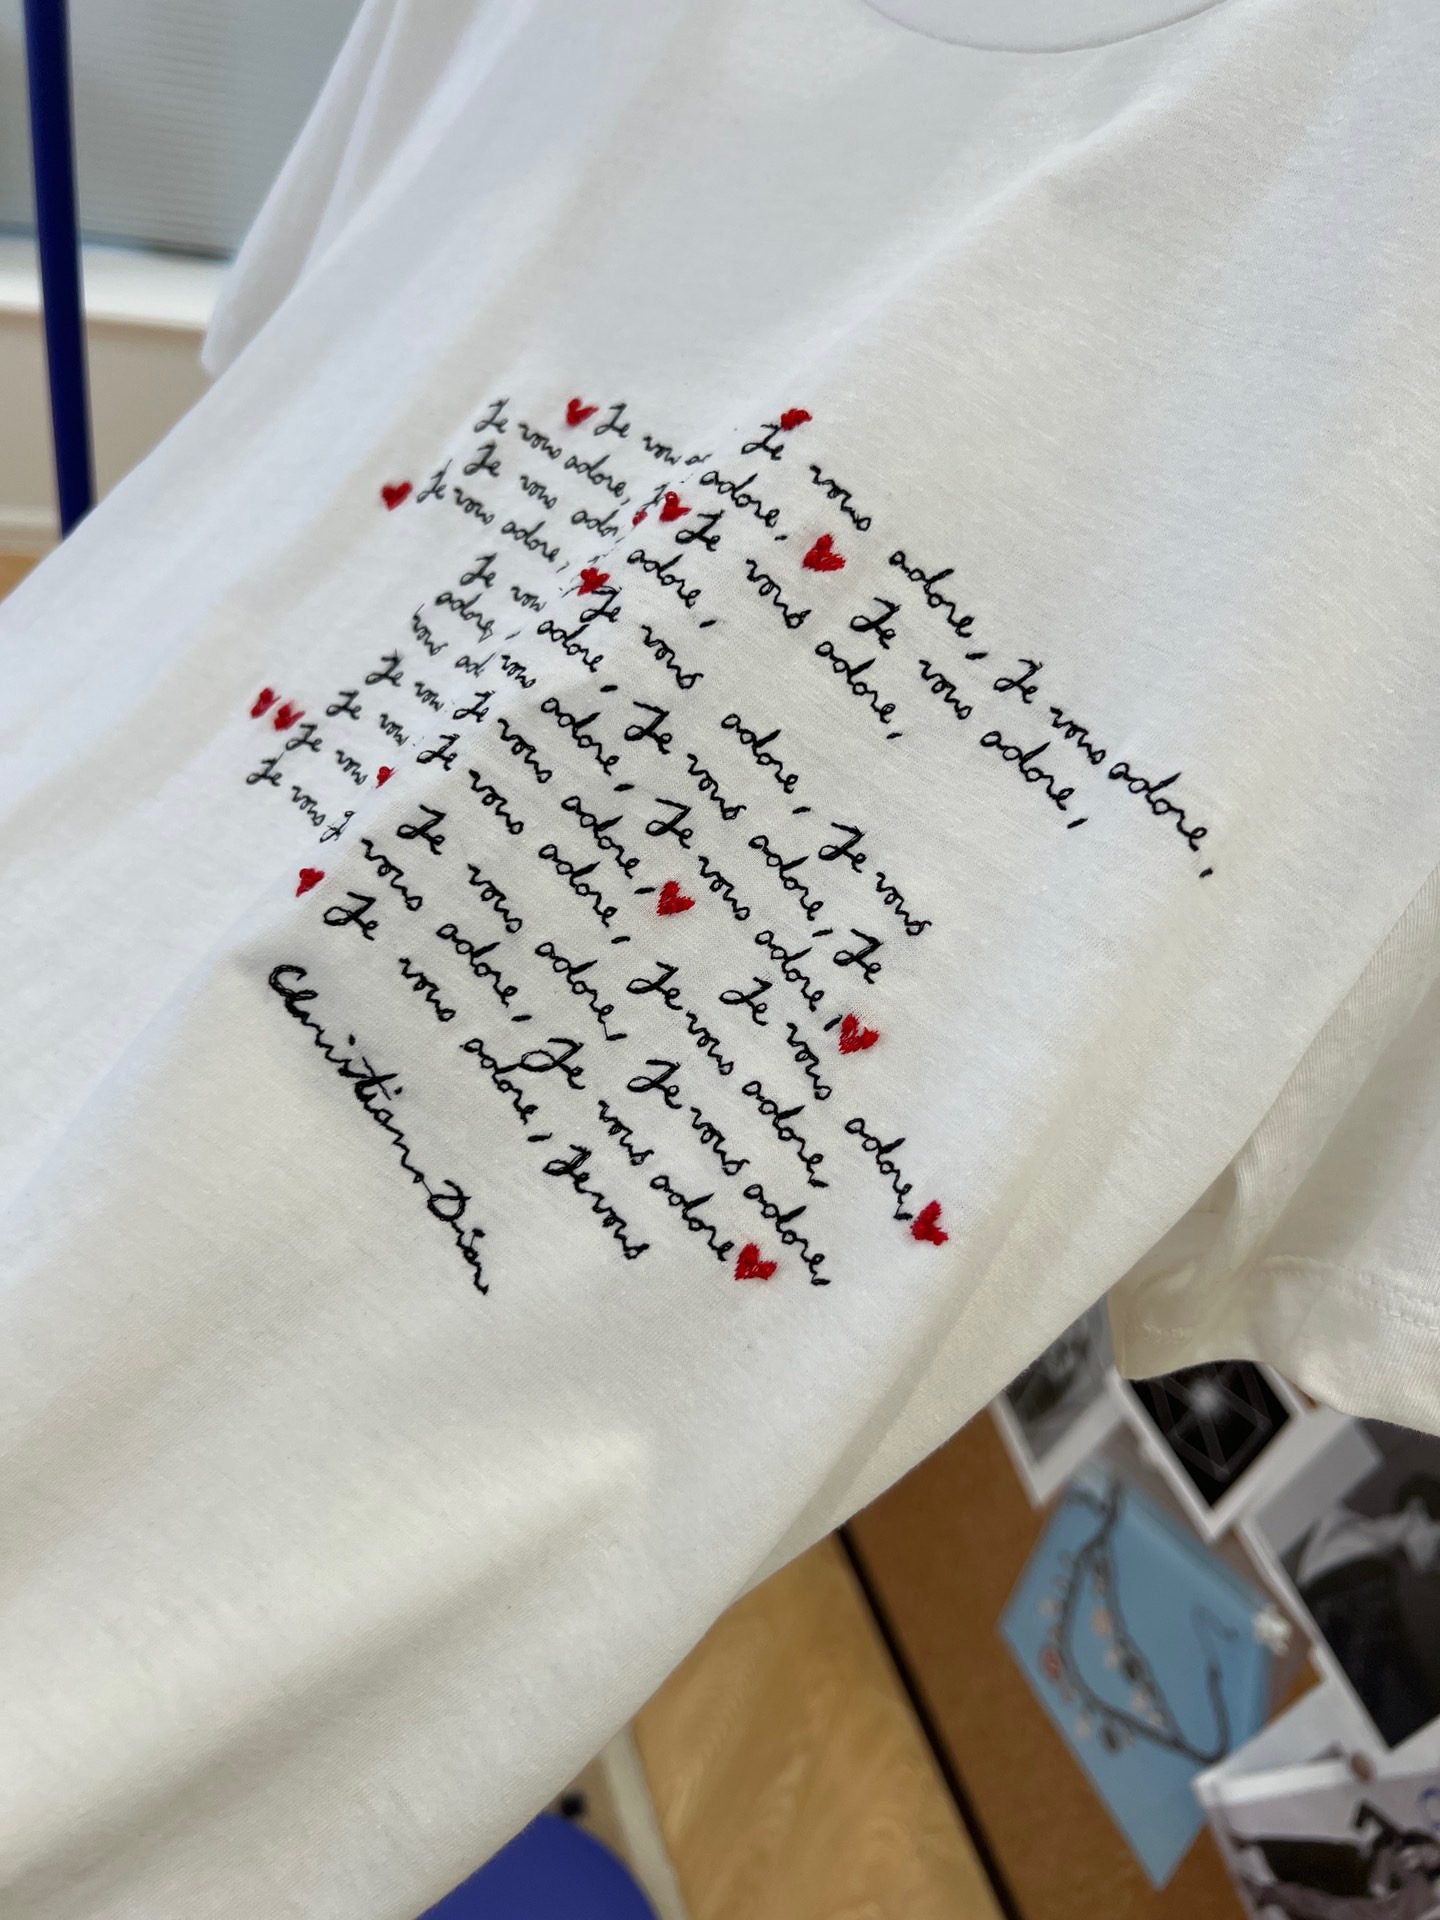 Je vous adore, Je vous adore,
Je vous adore, Je vous adore,
Je vous adore, Je vous adore,
Je vous adore,
Je vous adore, Je vous adore, Je vous
Je vous adore, Je vous adore, Je
adore, vous adore, Je vous adore,
vous Je vous adore, Je vous adore,
Je vous Je vous adore, Je vous adore,
Je vous Je vous adore, Je vous adore,
Je vous vous adore, Je vous adore
Je vous Je vous adore, Je vous
Christian Dior